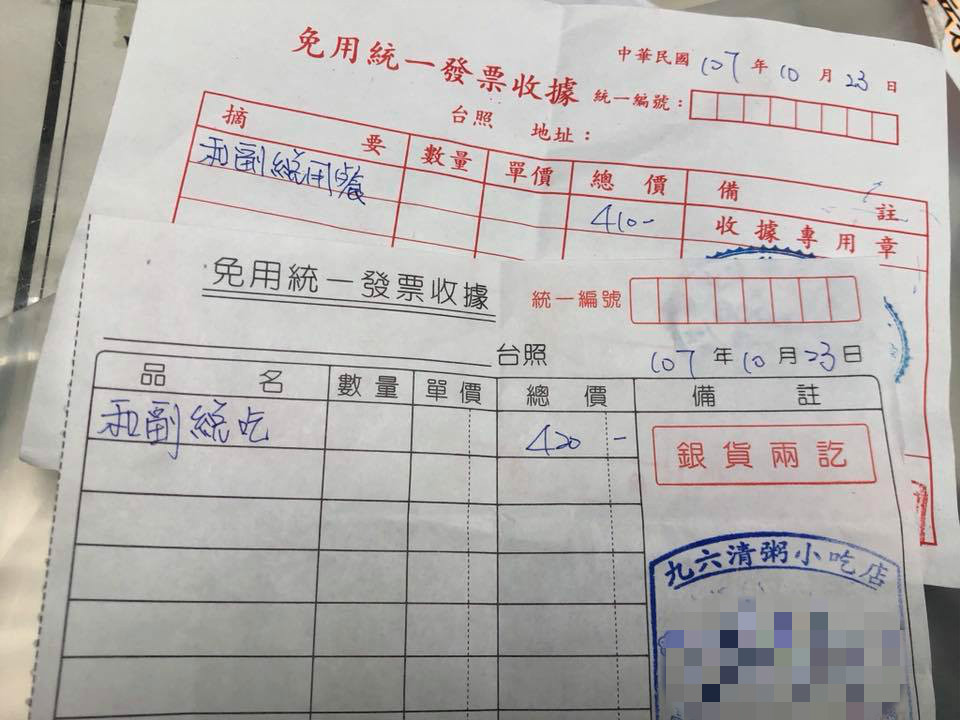 免用統一發票收據
中華民國 107 年 10 月 23 日
統一編號：
台照 地址：
摘要 數量 單價 總價 備註
和副總用餐 410-
收據專用章
免用統一發票收據
統一編號
台照 107 年 10 月 23 日
品名 數量 單價 總價 備註
和副總吃 420 -
銀貨兩訖
九六清粥小吃店